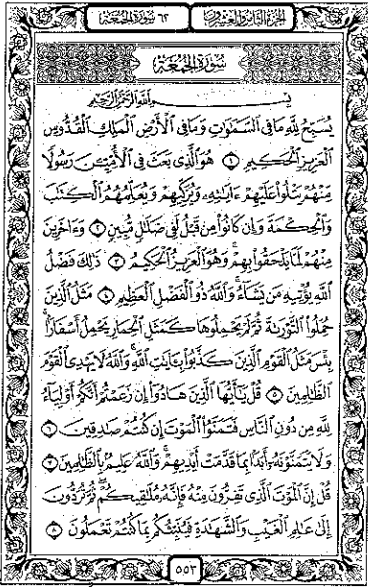 الجزء الثامن والعشرون ٦٢ سورة الجمعة
سورة الجمعة
بسم الله الرحمن الرحيم
يُسَبِّحُ لِلَّهِ مَا فِي السَّمَٰوَٰتِ وَمَا فِي الْأَرْضِ الْمَلِكِ الْقُدُّوسِ
الْعَزِيزِ الْحَكِيمِ ١ هُوَ الَّذِي بَعَثَ فِي الْأُمِّيِّينَ رَسُولًا
مِّنْهُمْ يَتْلُوا۟ عَلَيْهِمْ ءَايَٰتِهِ وَيُزَكِّيهِمْ وَيُعَلِّمُهُمُ الْكِتَٰبَ
وَالْحِكْمَةَ وَإِن كَانُوا۟ مِن قَبْلُ لَفِي ضَلَٰلٍ مُّبِينٍ ٢ وَءَاخَرِينَ
مِنْهُمْ لَمَّا يَلْحَقُوا۟ بِهِمْ وَهُوَ الْعَزِيزُ الْحَكِيمُ ٣ ذَٰلِكَ فَضْلُ
اللَّهِ يُؤْتِيهِ مَن يَشَاءُ وَاللَّهُ ذُو الْفَضْلِ الْعَظِيمِ ٤ مَثَلُ الَّذِينَ
حُمِّلُوا۟ التَّوْرَىٰةَ ثُمَّ لَمْ يَحْمِلُوهَا كَمَثَلِ الْحِمَارِ يَحْمِلُ أَسْفَارًا
بِئْسَ مَثَلُ الْقَوْمِ الَّذِينَ كَذَّبُوا۟ بِـَٔايَٰتِ اللَّهِ وَاللَّهُ لَا يَهْدِي الْقَوْمَ
الظَّٰلِمِينَ ٥ قُلْ يَٰأَيُّهَا الَّذِينَ هَادُوا۟ إِن زَعَمْتُمْ أَنَّكُمْ أَوْلِيَاءُ
لِلَّهِ مِن دُونِ النَّاسِ فَتَمَنَّوُا۟ الْمَوْتَ إِن كُنتُمْ صَٰدِقِينَ ٦
وَلَا يَتَمَنَّوْنَهُ أَبَدًا بِمَا قَدَّمَتْ أَيْدِيهِمْ وَاللَّهُ عَلِيمٌ بِالظَّٰلِمِينَ ٧
قُلْ إِنَّ الْمَوْتَ الَّذِي تَفِرُّونَ مِنْهُ فَإِنَّهُ مُلَٰقِيكُمْ ثُمَّ تُرَدُّونَ
إِلَىٰ عَٰلِمِ الْغَيْبِ وَالشَّهَٰدَةِ فَيُنَبِّئُكُم بِمَا كُنتُمْ تَعْمَلُونَ ٨
٥٥٣